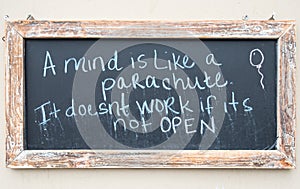 A mind is Like a
parachute.
It doesnt WORK if its
not OPEN